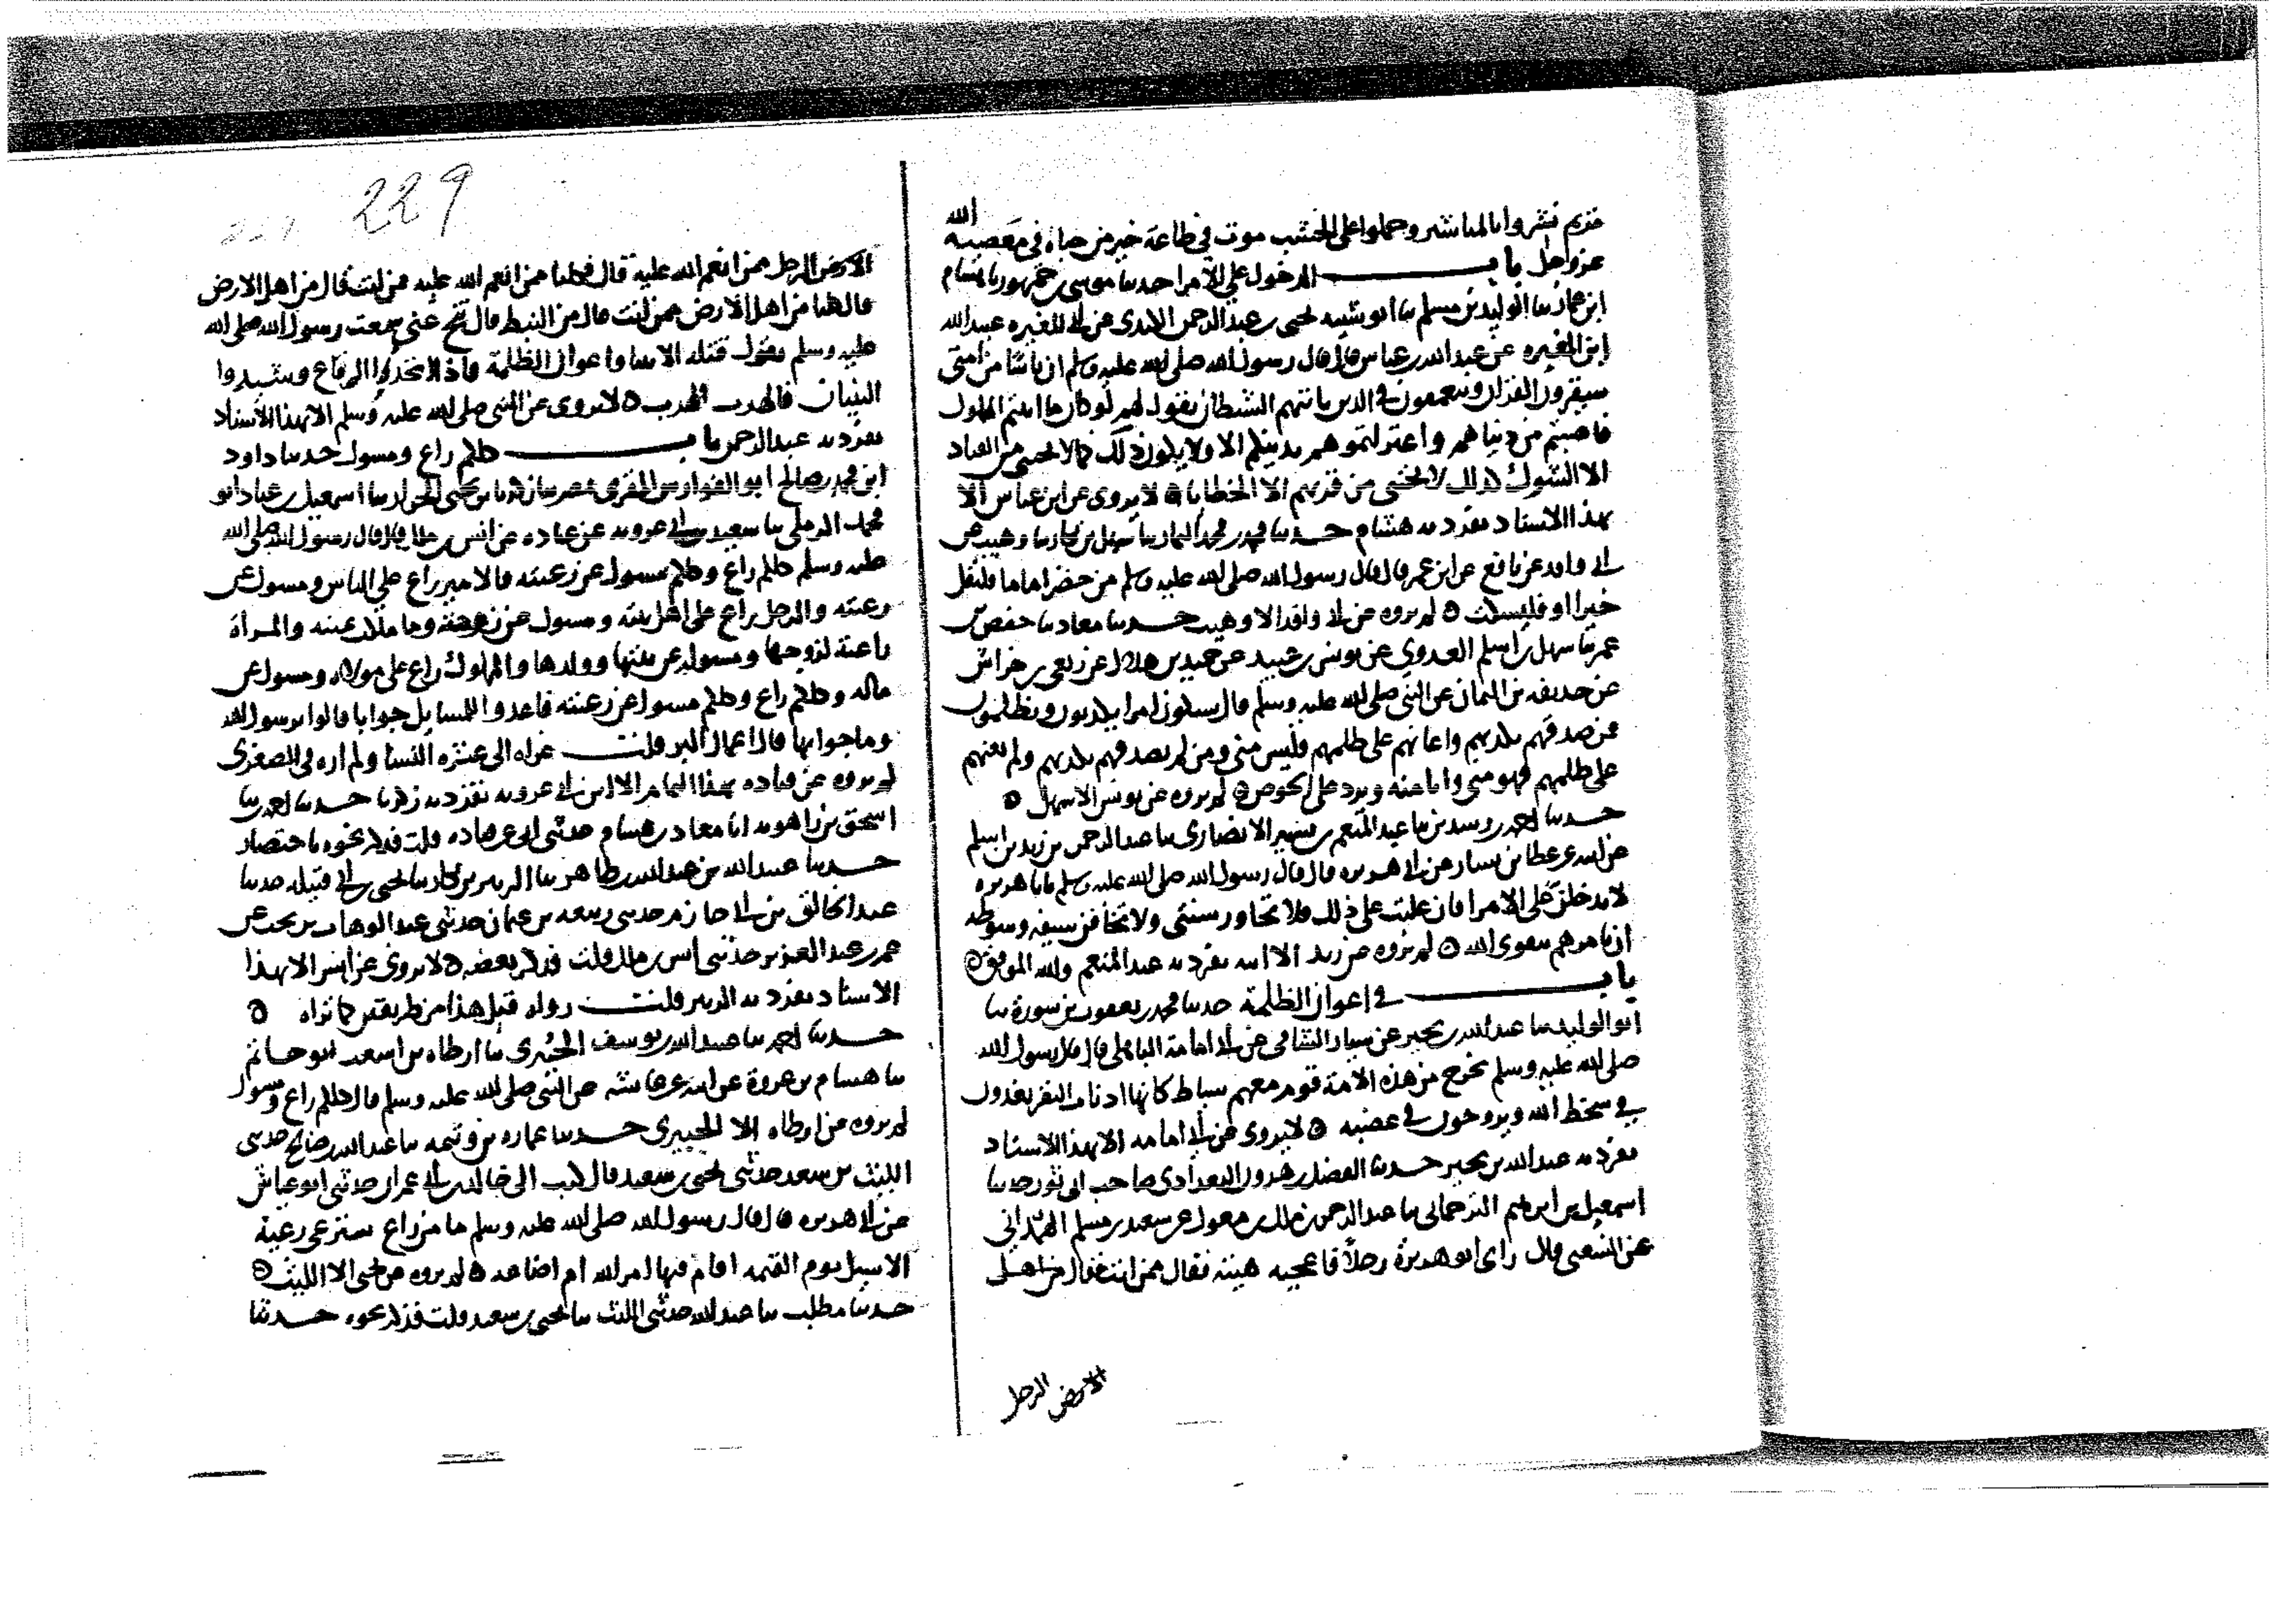 مريم نشروا بالمناشير وحملوا على الخشب موت في طاعة خير من حياة في معصية الله
عز وجل باب الدخول على الامرا حدثنا موسى بن جمهور نا هشام
ابن عمار نا الوليد بن مسلم نا ابو شيبه يحيى بن عبد الرحمن الكندي عن ابي المغيره عبيد الله
ابن المغيره عن عبد الله بن عباس قال قال رسول الله صلى الله عليه وسلم ان ناسا من امتي
سيقرون القران ويتعمقون في الدين ياتيهم الشيطان يقول لهم لو كان ما اتيتم الملوك
فاصبتم من دنياهم واعتزلتموهم بدينكم الا ولا يكون ذلك كما لا يجتنى من القتاد
الا الشوك كذلك لا يجتنى من قربهم الا الخطايا لا يروى عن ابن عباس الا
بهذا الاسناد تفرد به هشام حدثنا محمد بن محمد التمار نا سهل بن بكار نا وهيب عن
ابي واقد عن نافع عن ابن عمر قال قال رسول الله صلى الله عليه وسلم من حضر اماما فليقل
خيرا او فليسكت لم يروه عن ابي واقد الا وهيب حدثنا معاذ نا حفص بن
عمر نا سهل بن اسلم العدوي عن يونس بن عبيد عن حميد بن هلال عن ربعي بن خراش
عن حذيفه بن اليمان عن النبي صلى الله عليه وسلم قال سيكون امرا يكذبون ويظلمون
فمن صدقهم بكذبهم واعانهم على ظلمهم فليس مني ومن لم يصدقهم بكذبهم ولم يعنهم
على ظلمهم فهو مني وانا منه ويرد على الحوض لم يروه عن يونس الا سهل
حدثنا احمد بن رشدين نا عبد المنعم بن بشير الانصاري نا عبد الرحمن بن زيد بن اسلم
عن ابيه عن عطا بن يسار عن ابي هريره قال قال رسول الله صلى الله عليه وسلم يابا هريره
لا تدخلن على الامرا فان غلبت على ذلك فلا تجاوز سنتي ولا تخافن سيفه وسوطه
ان تامرهم بتقوى الله لم يروه عن زيد الا ابنه تفرد به عبد المنعم والله الموفق
باب في اعوان الظلمة حدثنا محمد بن يعقوب بن سورة نا
ابو الوليد نا عبد الله بن بحير عن سيار الشامي عن ابي امامة الباهلي قال قال رسول الله
صلى الله عليه وسلم يخرج من هذه الامة قوم معهم سياط كانها اذناب البقر يغدون
في سخط الله ويروحون في غضبه لا يروى عن ابي امامه الا بهذا الاسناد
تفرد به عبد الله بن بحير حدثنا الفضل بن هرون البغدادي صاحب ابي ثور حدثنا
اسمعيل بن ابرهيم الترجماني نا عبد الرحمن بن ملك بن مغول عن سعيد بن مسلم الهمداني
عن الشعبي قال راى ابو هريرة رجلا فاعجبه هيئته فقال ممن انت فقال من اهل
الارض الرجل
229
الارض الرجل ممن انعم الله عليه قال فكلنا ممن انعم الله عليه ممن انت قال من اهل الارض
قال كلنا من اهل الارض ممن انت قال من النبط قال تنح عني سمعت رسول الله صلى الله
عليه وسلم يقول قتلة الانبيا واعوان الظلمة فاذا اتخذوا الرباع وشيدوا
البنيان فالهرب الهرب لا يروى عن النبي صلى الله عليه وسلم الا بهذا الاسناد
تفرد به عبد الرحمن باب كلكم راع ومسول حدثنا داود
ابن محمد بن صالح ابو الفوارس المقري بمصر نا زكريا بن يحيى الخراز نا اسمعيل بن عباد ابو
محمد الرملي نا سعيد بن ابي عروبه عن قتاده عن انس بن ملك قال قال رسول الله صلى الله
عليه وسلم كلكم راع وكلكم مسول عن رعيته فالامير راع على الناس ومسول عن
رعيته والرجل راع على اهل بيته ومسول عن زوجته وما ملكت يمينه والمراة
راعية لزوجها ومسوله عن بيتها وولدها والمملوك راع على مولاه ومسول عن
ماله وكلكم راع وكلكم مسول عن رعيته فاعدوا للمسايل جوابا قالوا يرسول الله
وما جوابها قال اعمال البر قلت عزاه الى عشرة النسا ولم اره في الصغرى
لم يروه عن قتاده بهذا التمام الا ابن ابي عروبه تفرد به زكريا حدثنا احمد نا
اسحق بن راهويه انا معاذ بن هشام حدثني ابي عن قتاده قلت فذكر نحوه باختصار
حدثنا عبيد الله بن عبد الله بن طاهر نا الزبير بن بكار نا يحيى بن ابي قتيله حدثنا
عبد الخالق بن ابي حازم حدثني ربيعه بن عثمان حدثني عبد الوهاب بن بخت عن
عمر بن عبد العزيز حدثني انس بن ملك قلت فذكر بعضه لا يروى عن انس الا بهذا
الاسناد تفرد به الزبير قلت رواه قبل هذا من طريقين كما تراه
حدثنا احمد نا عبد الله بن يوسف الجبيري نا ارطاه بن اسعد ابو حاتم
نا هشام بن عروة عن ابيه عن عائشه عن النبي صلى الله عليه وسلم قال كلكم راع ومسول
لم يروه عن ارطاه الا الجبيري حدثنا عماره بن وثيمه نا عبد الله بن صالح حدثني
الليث بن سعد حدثني يحيى بن سعيد قال كتب الى خالد بن ابي عمران حدثني ابو عياش
عن ابي هريره قال قال رسول الله صلى الله عليه وسلم ما من راع يسترعى رعية
الا سيل يوم القيمه اقام فيها امر الله ام اضاعه لم يروه عن يحيى الا الليث
حدثنا مطلب نا عبد الله حدثني الليث نا يحيى بن سعيد قلت فذكر نحوه حدثنا